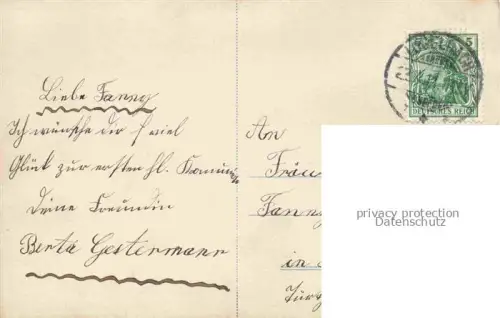 Liebe Fanny
Ich wünsche dir viel
Glück zur ersten hl. Komunion
Deine Freundin
Berta Gestermann
An
Fräu
Fanny
in
5
DEUTSCHES REICH
privacy protection
Datenschutz